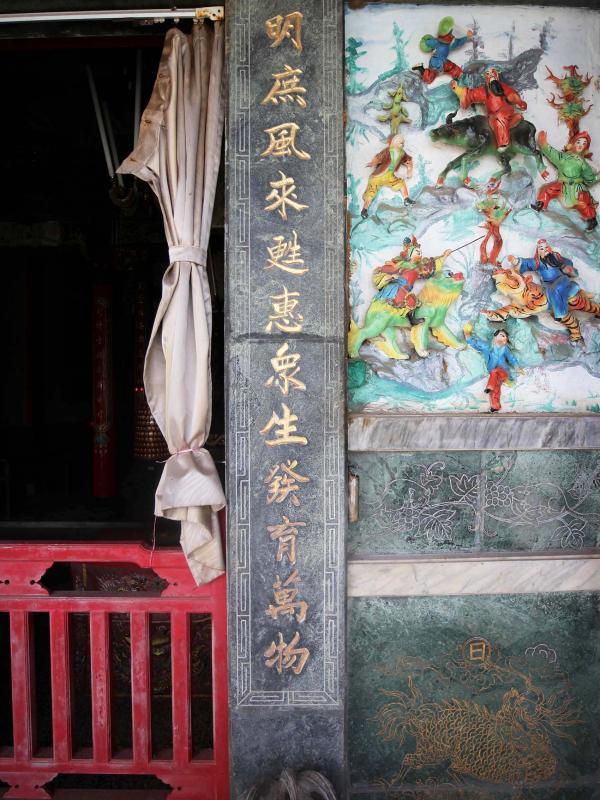 明庶風來甦惠衆生發育萬物
日